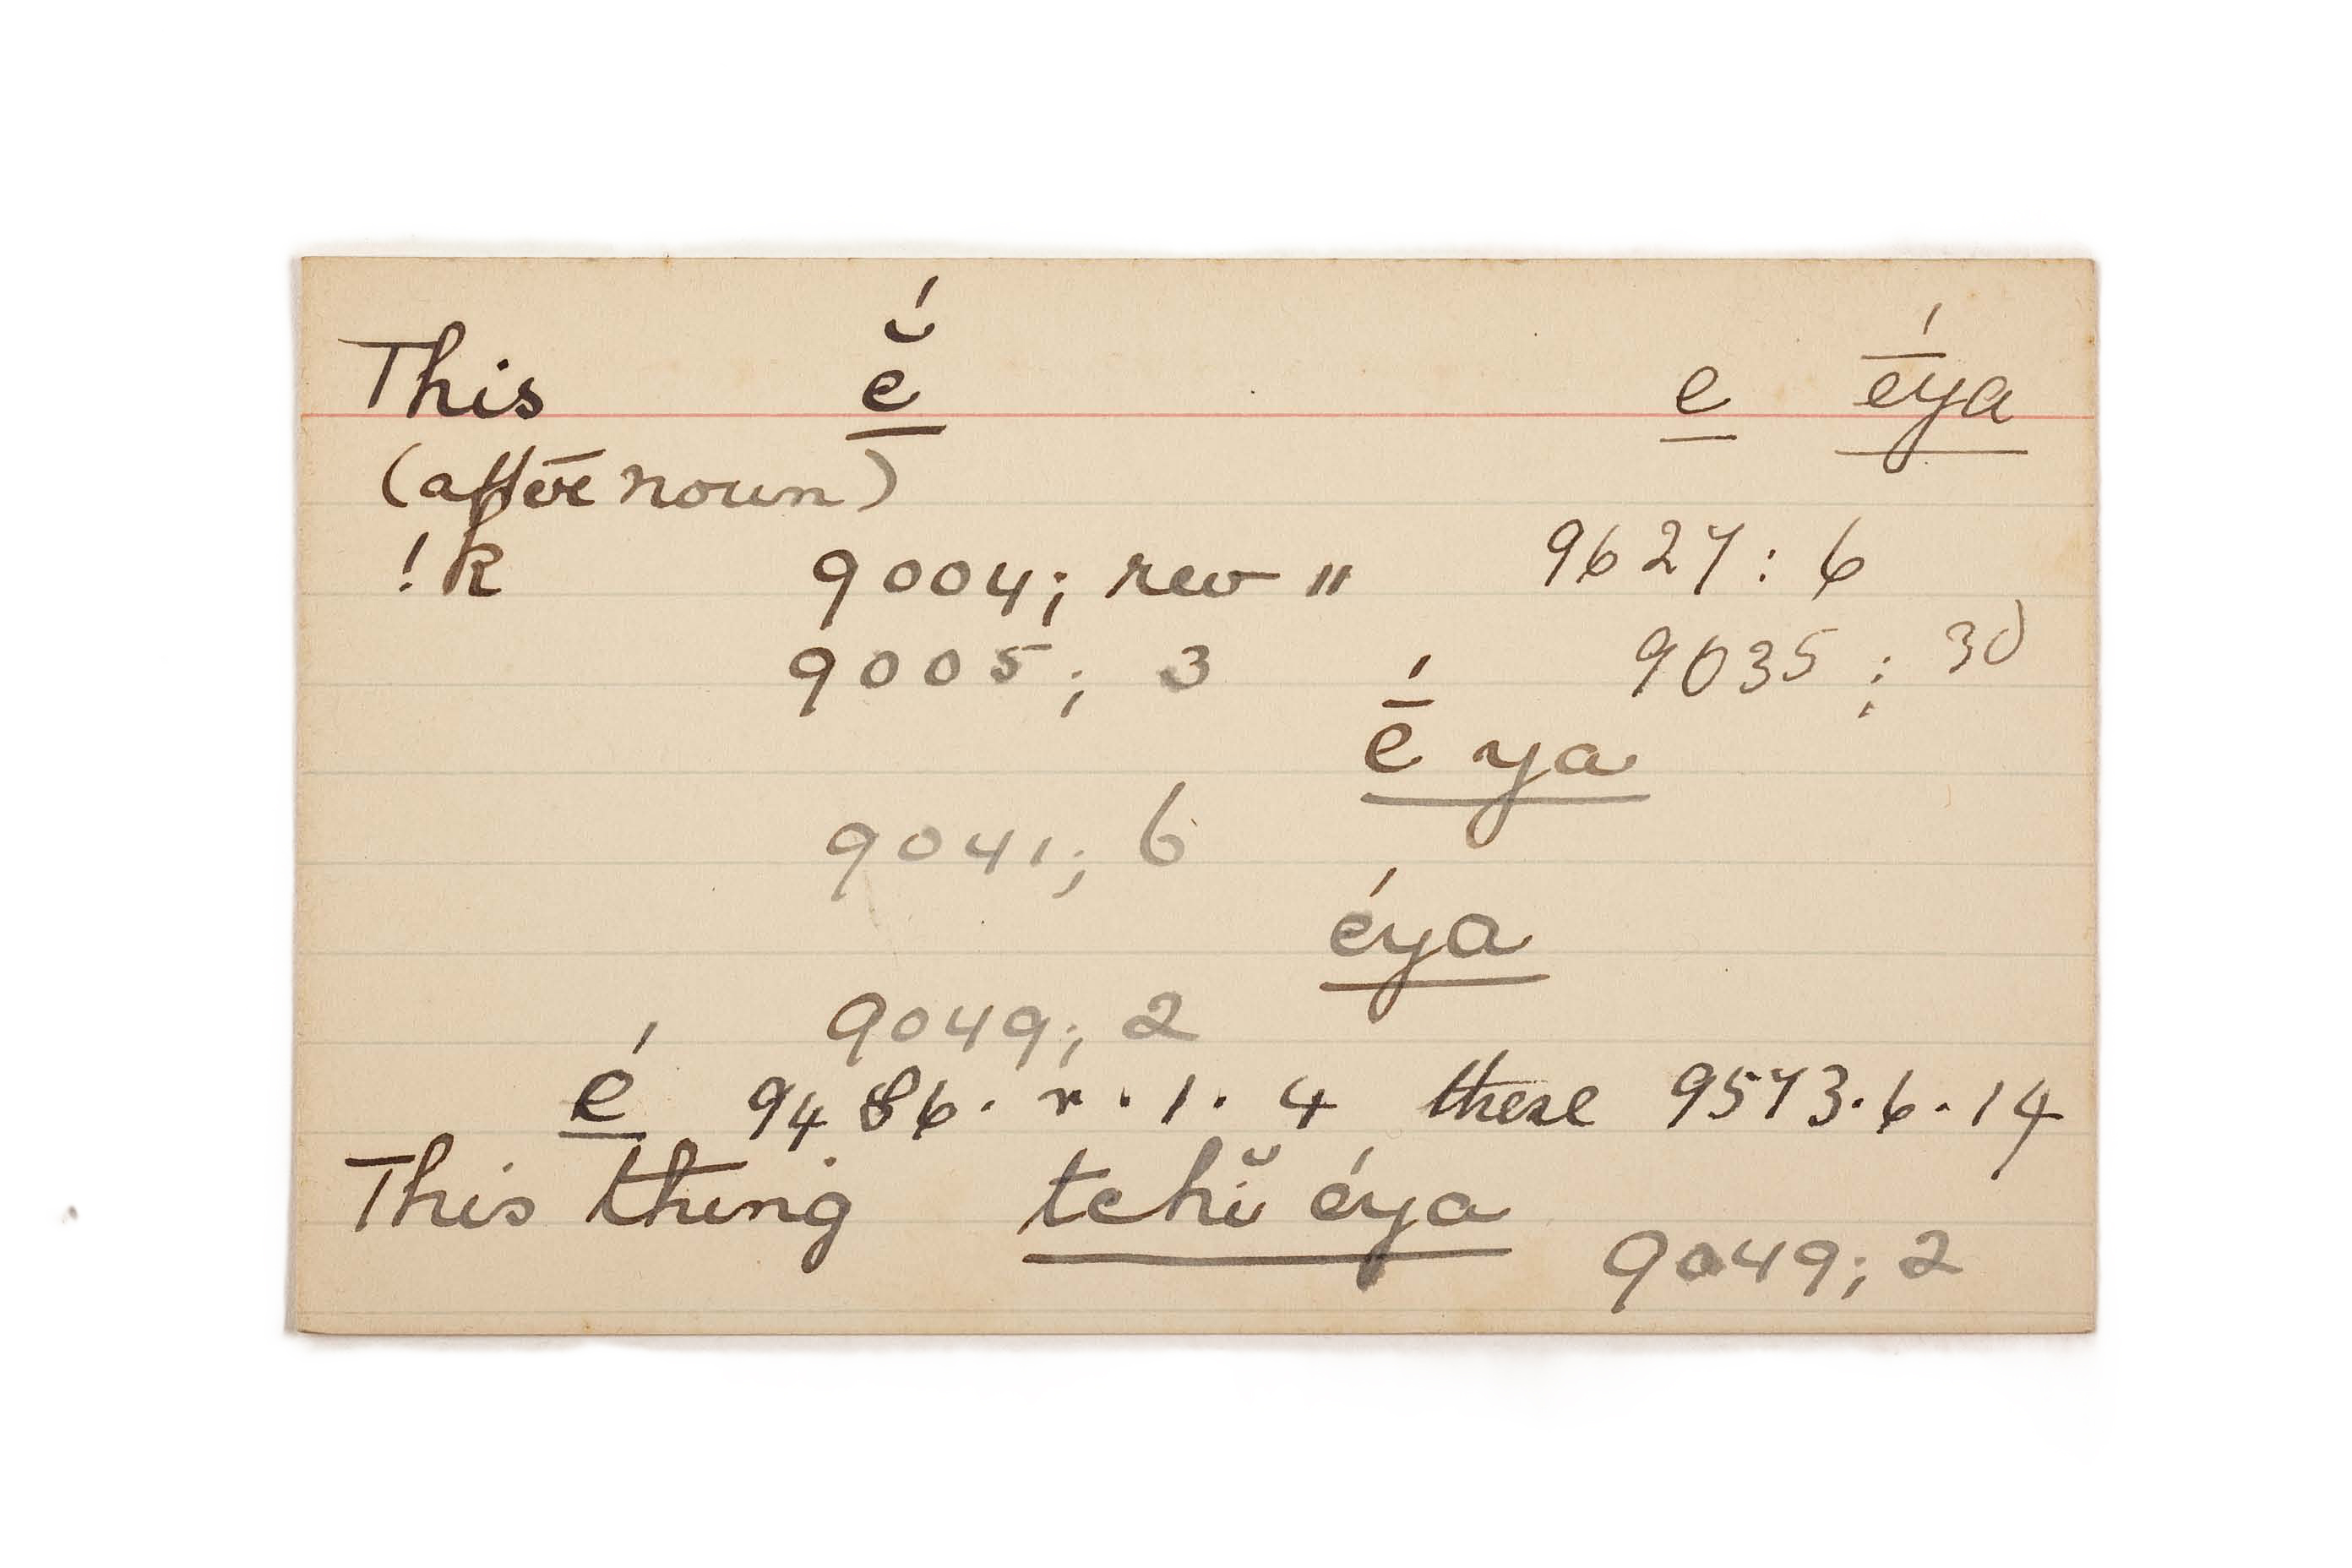 This ĕ́ e ḗya
(after noun)
!k 9004; rev " 9627: 6
9005; 3 9035; 30
ḗ ya
9041; 6
éya
9049; 2
é 9486. r. 1. 4 these 9573.6.14
This thing tchĭ éya
9049; 2